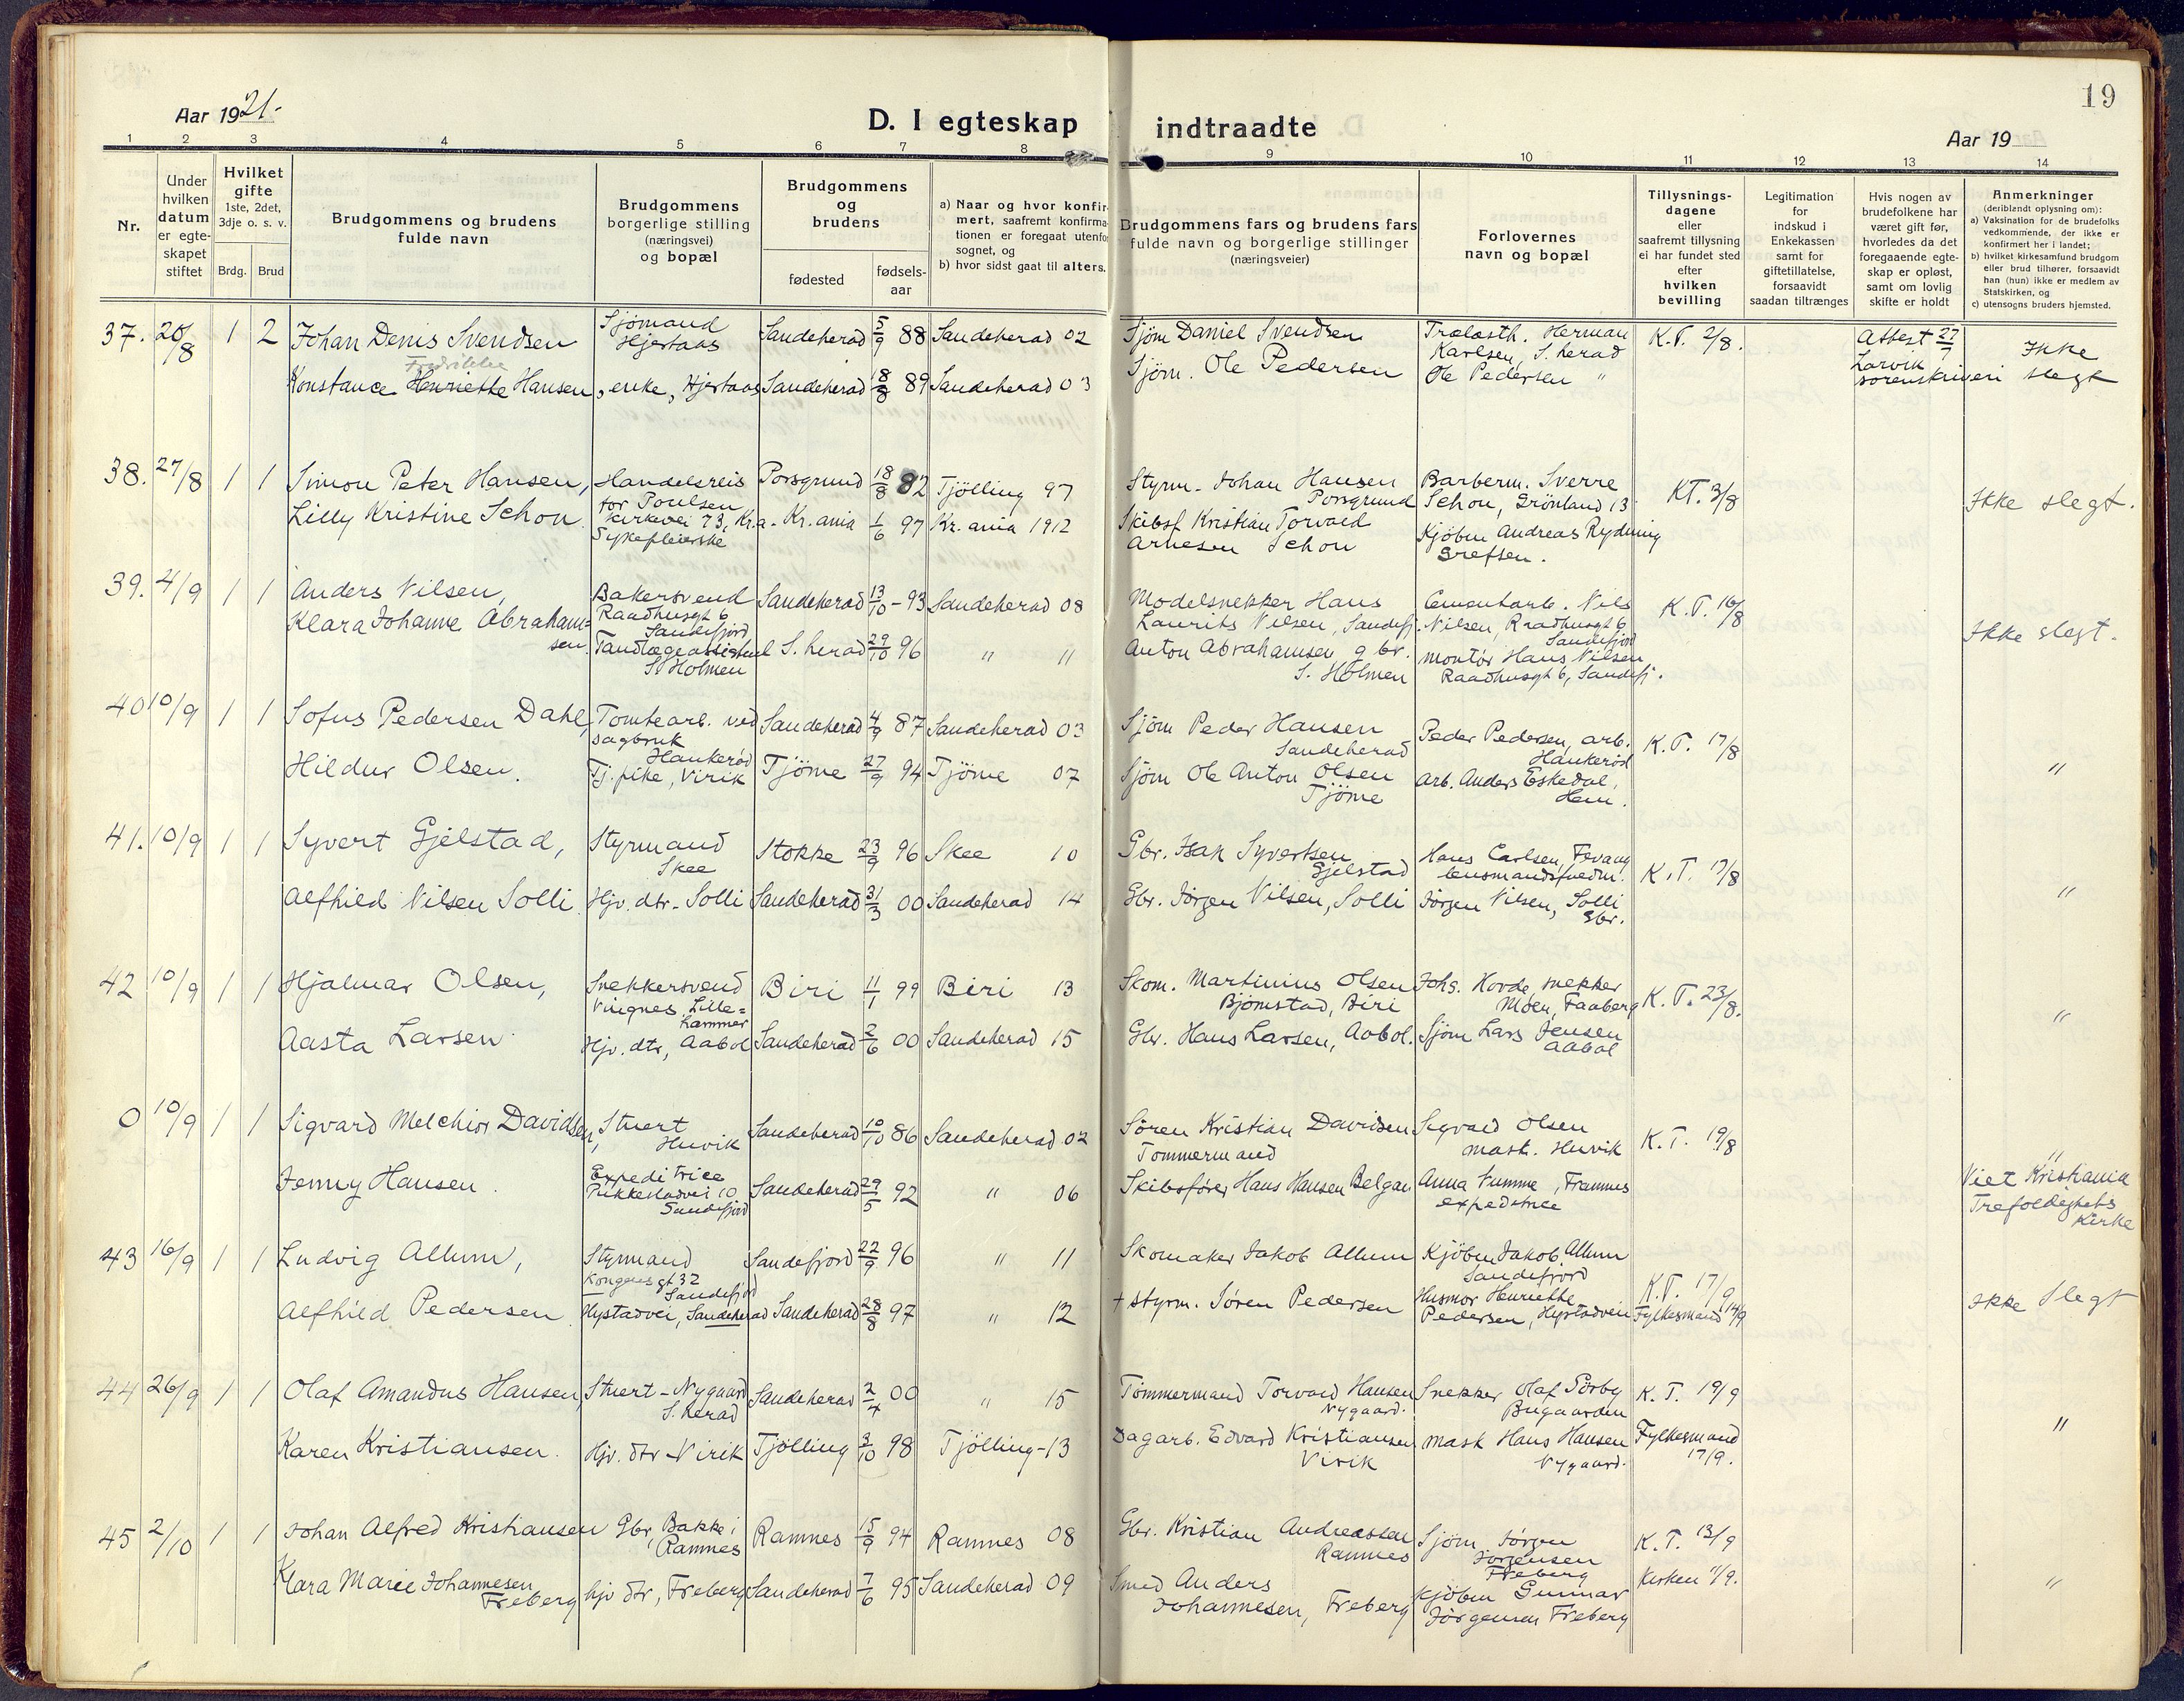 19
Aar 1921.-
D. I egteskap indtraadte
Aar 19
1 2 3 4 5 6 7 8 9 10 11 12 13 14
Nr.
Under
hvilken
datum
er egte-
skapet
stiftet
Hvilket
gifte
1ste, 2det,
3dje o. s. v.
Brdg. Brud
Brudgommens og brudens
fulde navn
Brudgommens
borgerlige stilling
(næringsvei)
og bopæl
Brudgommens
og
brudens
fødested
fødsels-
aar
a) Naar og hvor konfir-
mert, saafremt konfirma-
tionen er foregaat utenfor
sognet, og
b) hvor sidst gaat til alters.
Brudgommens fars og brudens fars
fulde navn og borgerlige stillinger
(næringsveier)
Forlovernes
navn og bopæl
Tillysnings-
dagene
eller
saafremt tillysning
ei har fundet sted
efter
hvilken
bevilling
Legitimation
for
indskud i
Enkekassen
samt for
giftetillatelse,
forsaavidt
saadan tiltrænges
Hvis nogen av
brudefolkene har
været gift før,
hvorledes da det
foregaaende egte-
skap er opløst,
samt om lovlig
skifte er holdt
Anmerkninger
(deriblandt oplysning om):
a) Vaksination for de brudefolks
vedkommende, der ikke er
konfirmert her i landet;
b) hvilket kirkesamfund brudgom
eller brud tilhører, forsaavidt
han (hun) ikke er medlem av
Statskirken, og
c) utensogns bruders hjemsted.
37. 20/8 1 2 Johan Denis Svendsen
Sjömand
Hjertaas
Sandeherad 5/9 88 Sandeherad 02
Sjöm Daniel Svendsen
Trælasth. Herman
Karlsen, S. herad
K.T. 2/8.
Attest 27/7
Larvik
sorenskriveri
Ikke
slegt
Fredrikke
Konstance Henriette Hansen, enke, Hjertaas Sandeherad 18/8 89 Sandeherad 03
Sjöm. Ole Pedersen
Ole Pedersen "
38. 27/8 1 1 Simon Peter Hansen,
Handelsreis
for Poulsen
Kirkevei 73, Kr.a.
Porsgrund 18/8 82 Tjölling 97
Styrm. Johan Hansen
Porsgrund
Barberm. Sverre
Schou, Grönland 13
KT. 3/8
Ikke slegt.
Lilly Kristine Schou.
Sykepleierske
Kr.ania 1/6 97 Kr.ania 1912
Skibsf Kristian Torvald
Arnesen Schou
Kjöbm Andreas Rydning
Grefsen.
39. 4/9 1 1 Anders Nilsen,
Bakersvend
Raadhusgt 6
Sandefjord
Sandeherad 13/10 - 93 Sandeherad 08
Modelsnekker Hans
Laurits Nilsen, Sandefj.
Cementarb. Nils
Nilsen, Raadhusgt 6
Sandefjord
K.T. 16/8
Ikke slegt.
Klara Johanne Abraham=
sen.
Tandlægeassistent
S. Holmen
S. herad 29/10 96 " 11
Anton Abrahamsen gbr.
S. Holmen
montør Hans Nilsen
Raadhusgt 6, Sandefj.
40 10/9 1 1 Sofus Pedersen Dahl,
Tomtearb. ved
sagbruk
Haukerød
Sandeherad 4/9 87 Sandeherad 03
Sjöm Peder Hansen
Sandeherad
Peder Pedersen, arb.
Haukerød
K.T. 17/8
"
Hildur Olsen.
Tj.pike, Virik
Tjöme 27/9 94 Tjöme 07
Sjöm Ole Anton Olsen
Tjöme
Arb. Anders Eskedal,
Hem.
41. 10/9 1 1 Syvert Gjelstad,
Styrmand
Skee
Stokke 23/9 96 Skee 10
Gbr. Isak Syvertsen
Gjelstad
Hans Carlsen, Fevang
lensmandsfuldm.
K.T. 17/8
"
Alfhild Nilsen Solli.
Hjv. dtr. Solli
Sandeherad 31/3 00 Sandeherad 14
Gbr. Jörgen Nilsen, Solli
Jörgen Nilsen, Solli
Gbr.
42 10/9 1 1 Hjalmar Olsen,
Snekkersvend
Vingnes, Lille=
hammer
Biri 11/1 99 Biri 13
Skom. Martinius Olsen
Björnstad, Biri
Johs. Hovde, snekker
Moen, Faaberg
K.T. 23/8.
"
Aasta Larsen.
Hjv. dtr, Aabol
Sandeherad 2/6 00 Sandeherad 15
Gbr. Hans Larsen, Aabol.
Sjöm Lars Jensen
Aabol
0 10/9 1 1 Sigvard Melchior Davidsen,
Stuert
Huvik
Sandeherad 10/10 86 Sandeherad 02
Sören Kristian Davidsen
Tömmermand
Sigvald Olsen
mask. Huvik
K.T. 19/8
"
Viet Kristiania
Trefoldighets
Kirke
Jenny Hansen.
Expeditrice
Pukkestadvei 10
Sandefjord
Sandeherad 29/5 92 " 06
Skibsförer Hans Hansen Belgau
Anna Numme, Framnes
expeditrice
43 16/9 1 1 Ludvig Allum,
Styrmand
Kongensgt. 32
Sandefjord
Sandefjord 22/9 96 " 11
Skomaker Jakob Allum
Kjöbm Jakob Allum
Sandefjord
K.T. 17/9
Fylkesmand 14/9
Ikke slegt
Alfhild Pedersen.
Hystadvei, Sandeherad
Sandeherad 28/8 97 " 12
+ styrm. Sören Pedersen
Husmor Henriette
Pedersen, Hystadveien
44 26/9 1 1 Olaf Amandus Hansen,
Stuert - Nygaard
S. herad
Sandeherad 2/4 00 " 15
Tömmermand Torvald Hansen
Nygaard.
Snekker Olaf Sörby
Bugaarden
K.T. 19/9
Fylkesmand
17/9.
"
Karen Kristiansen.
Hjv. dtr - Virik
Tjölling 3/10 98 Tjölling - 13
Dagarb. Edvard Kristiansen
Virik
Mask Hans Hansen
Nygaard.
45 2/10 1 1 Johan Alfred Kristiansen
Gbr, Bakke i
Ramnes
Ramnes 15/9 94 Ramnes 08
Gbr. Kristian Andreassen
Ramnes
Sjöm. Jörgen
Jörgensen
Freberg
K.T. 13/9
Kirken 11/9.
"
Klara Marie Johannesen
Freberg
hjv dtr, Freberg
Sandeherad 7/6 95 Sandeherad 09
Smed Anders
Johannesen, Freberg
Kjöbm Gunnar
Jörgensen Freberg